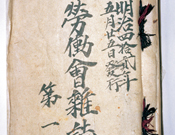 明治四拾貳年
五月廿五日発行
勞働會雜誌
第一